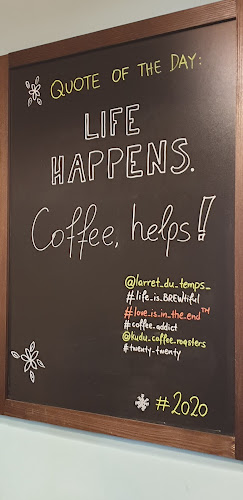 QUOTE OF THE DAY:
LIFE
HAPPENS.
Coffee, helps!
@larret_du_temps_
#life_is_BREWtiful
#love_is_in_the_end™
#coffee_addict
@kudu_coffee_roasters
#twenty_twenty
#2020